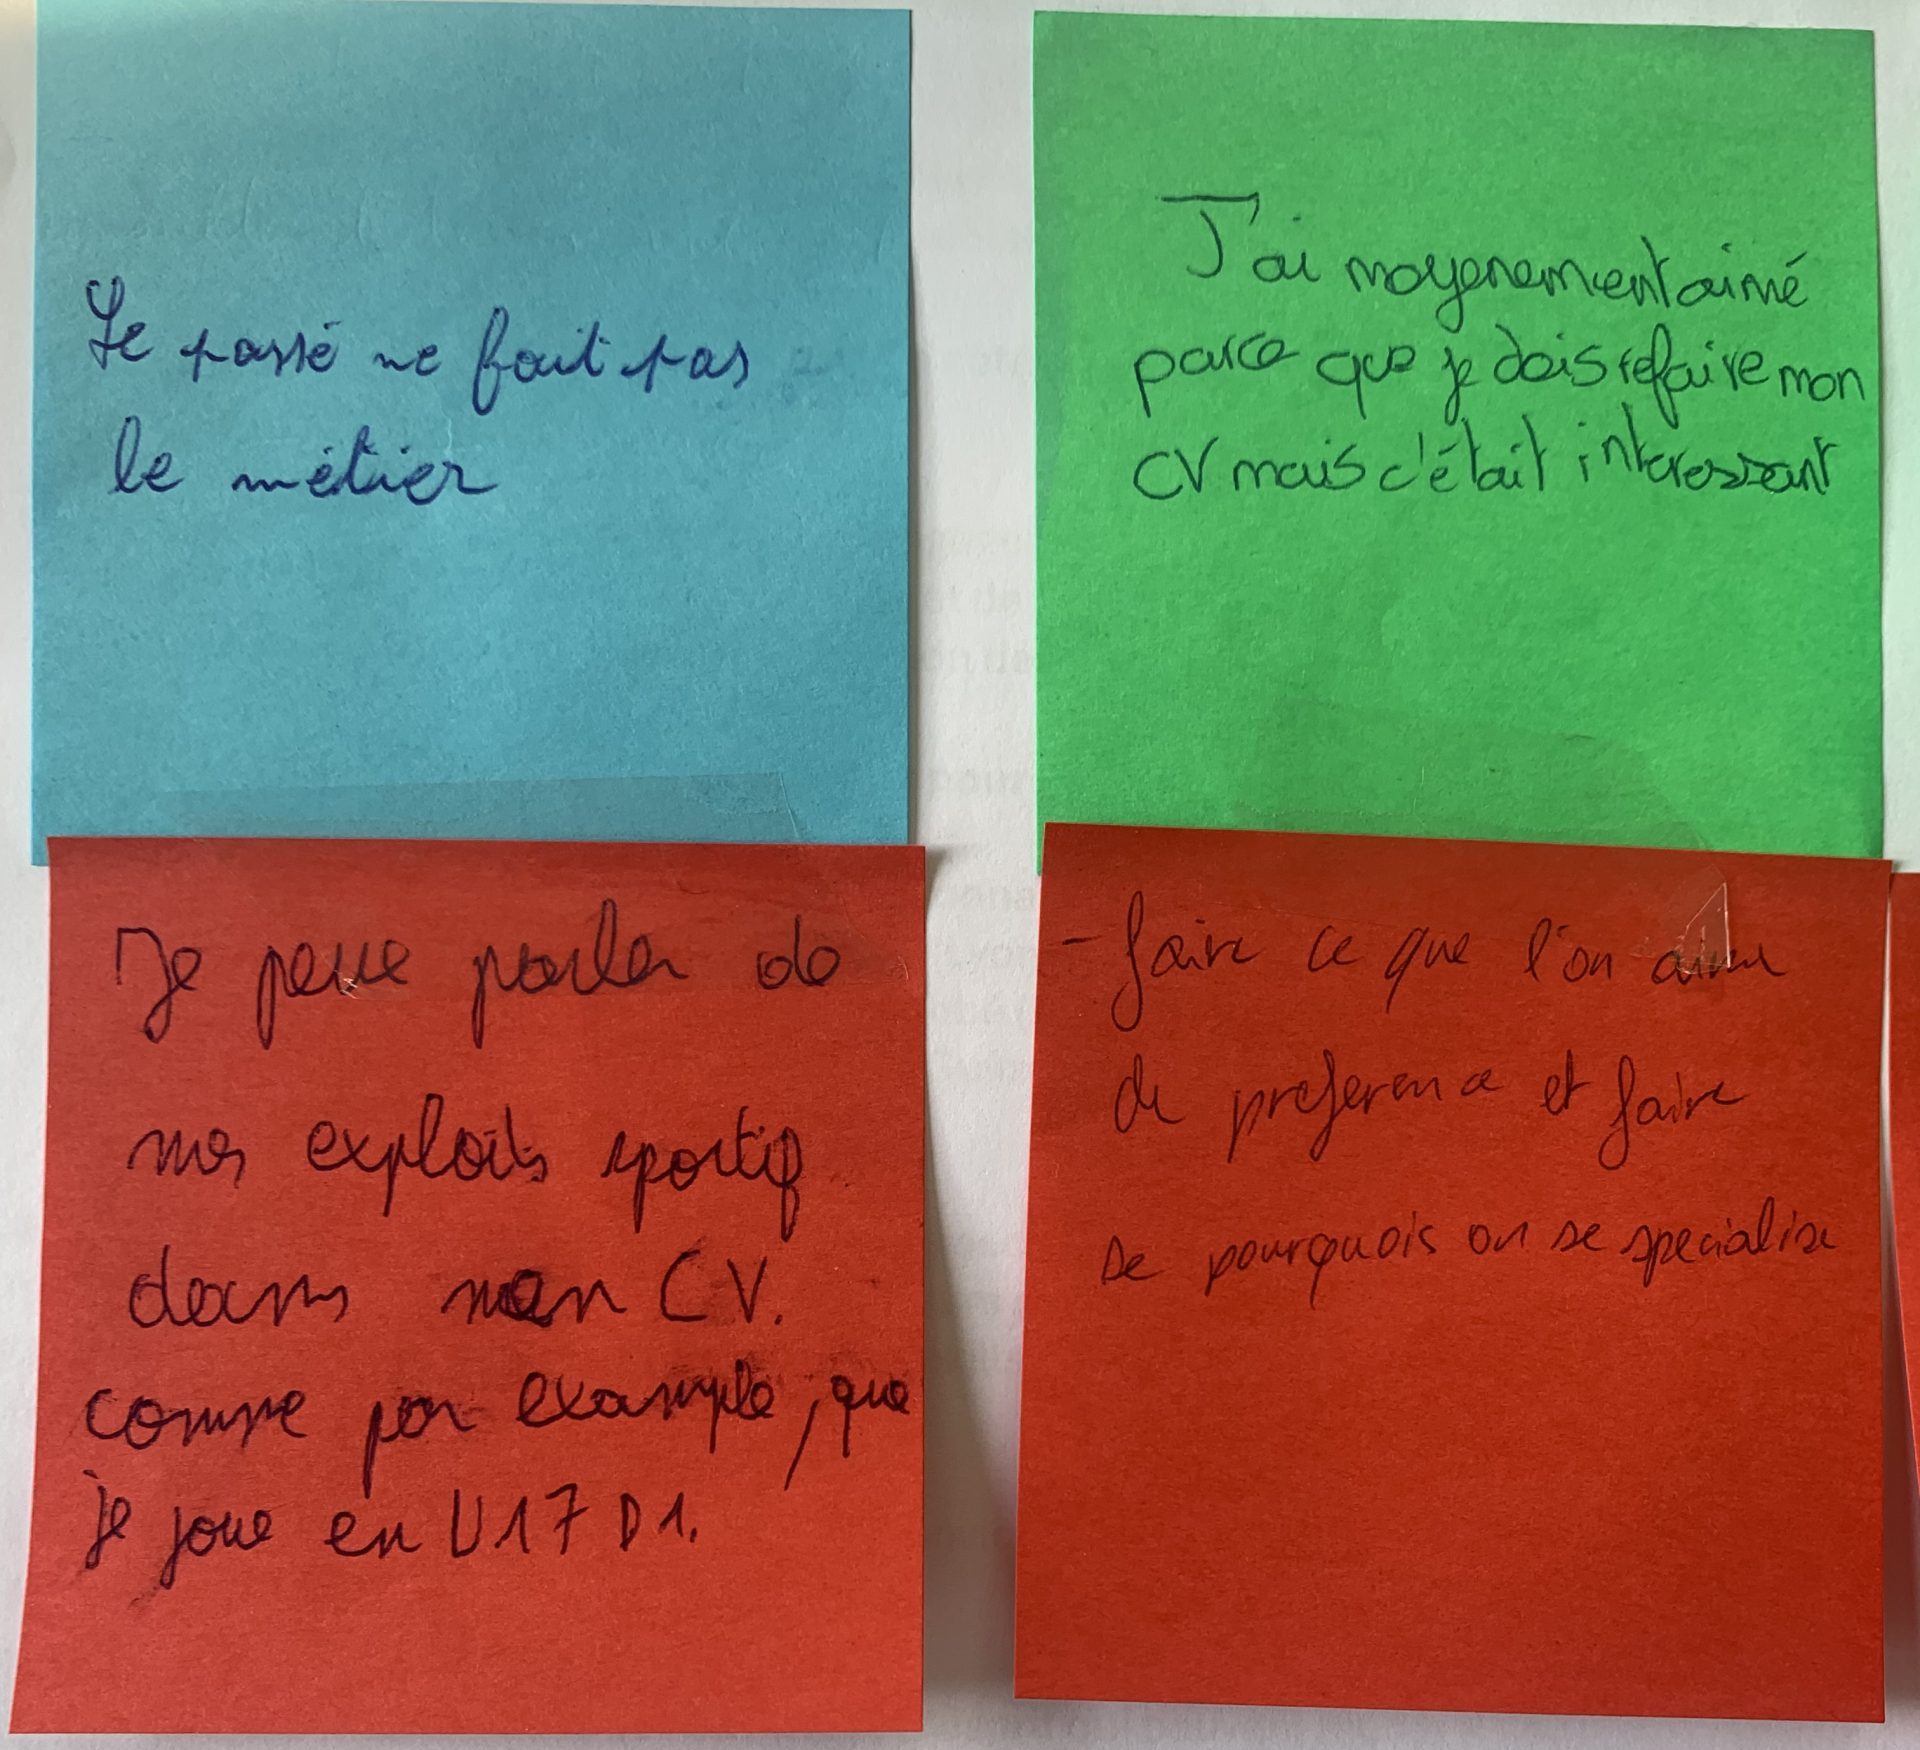 Le passé ne fait pas
le métier
J'ai moyenement aimé
parce que je dois refaire mon
CV mais c'était interessant
Je peux parler de
mes exploits sportif
dans mon CV.
comme par example, que
je joue en U17 D1.
- faire ce que l'on aime
de preference et faire
se pourquois on se specialise